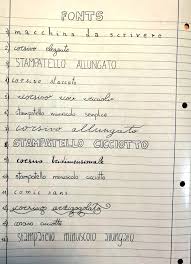 FONTS
1) macchina da scrivere
2) corsivo elegante
3) STAMPATELLO ALLUNGATO
4) corsivo staccato
5) corsivo
6) stampatello minuscolo semplice
7) corsivo allungato
8) STAMPATELLO CICCIOTTO
9) corsivo tridimensionale
10) stampatello minuscolo cicciotto
11) comic sans
12) corsivo
13) corsivo cicciotto
14) stampatello minuscolo allungato